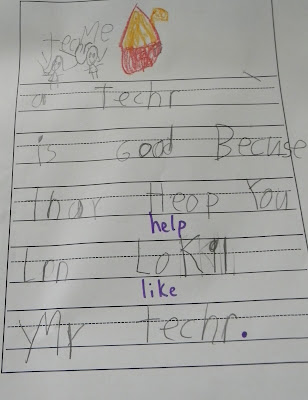 tec Me
a techr
is Good Becuse
thay Heop You
help
Lrn Lok
like
My techr.